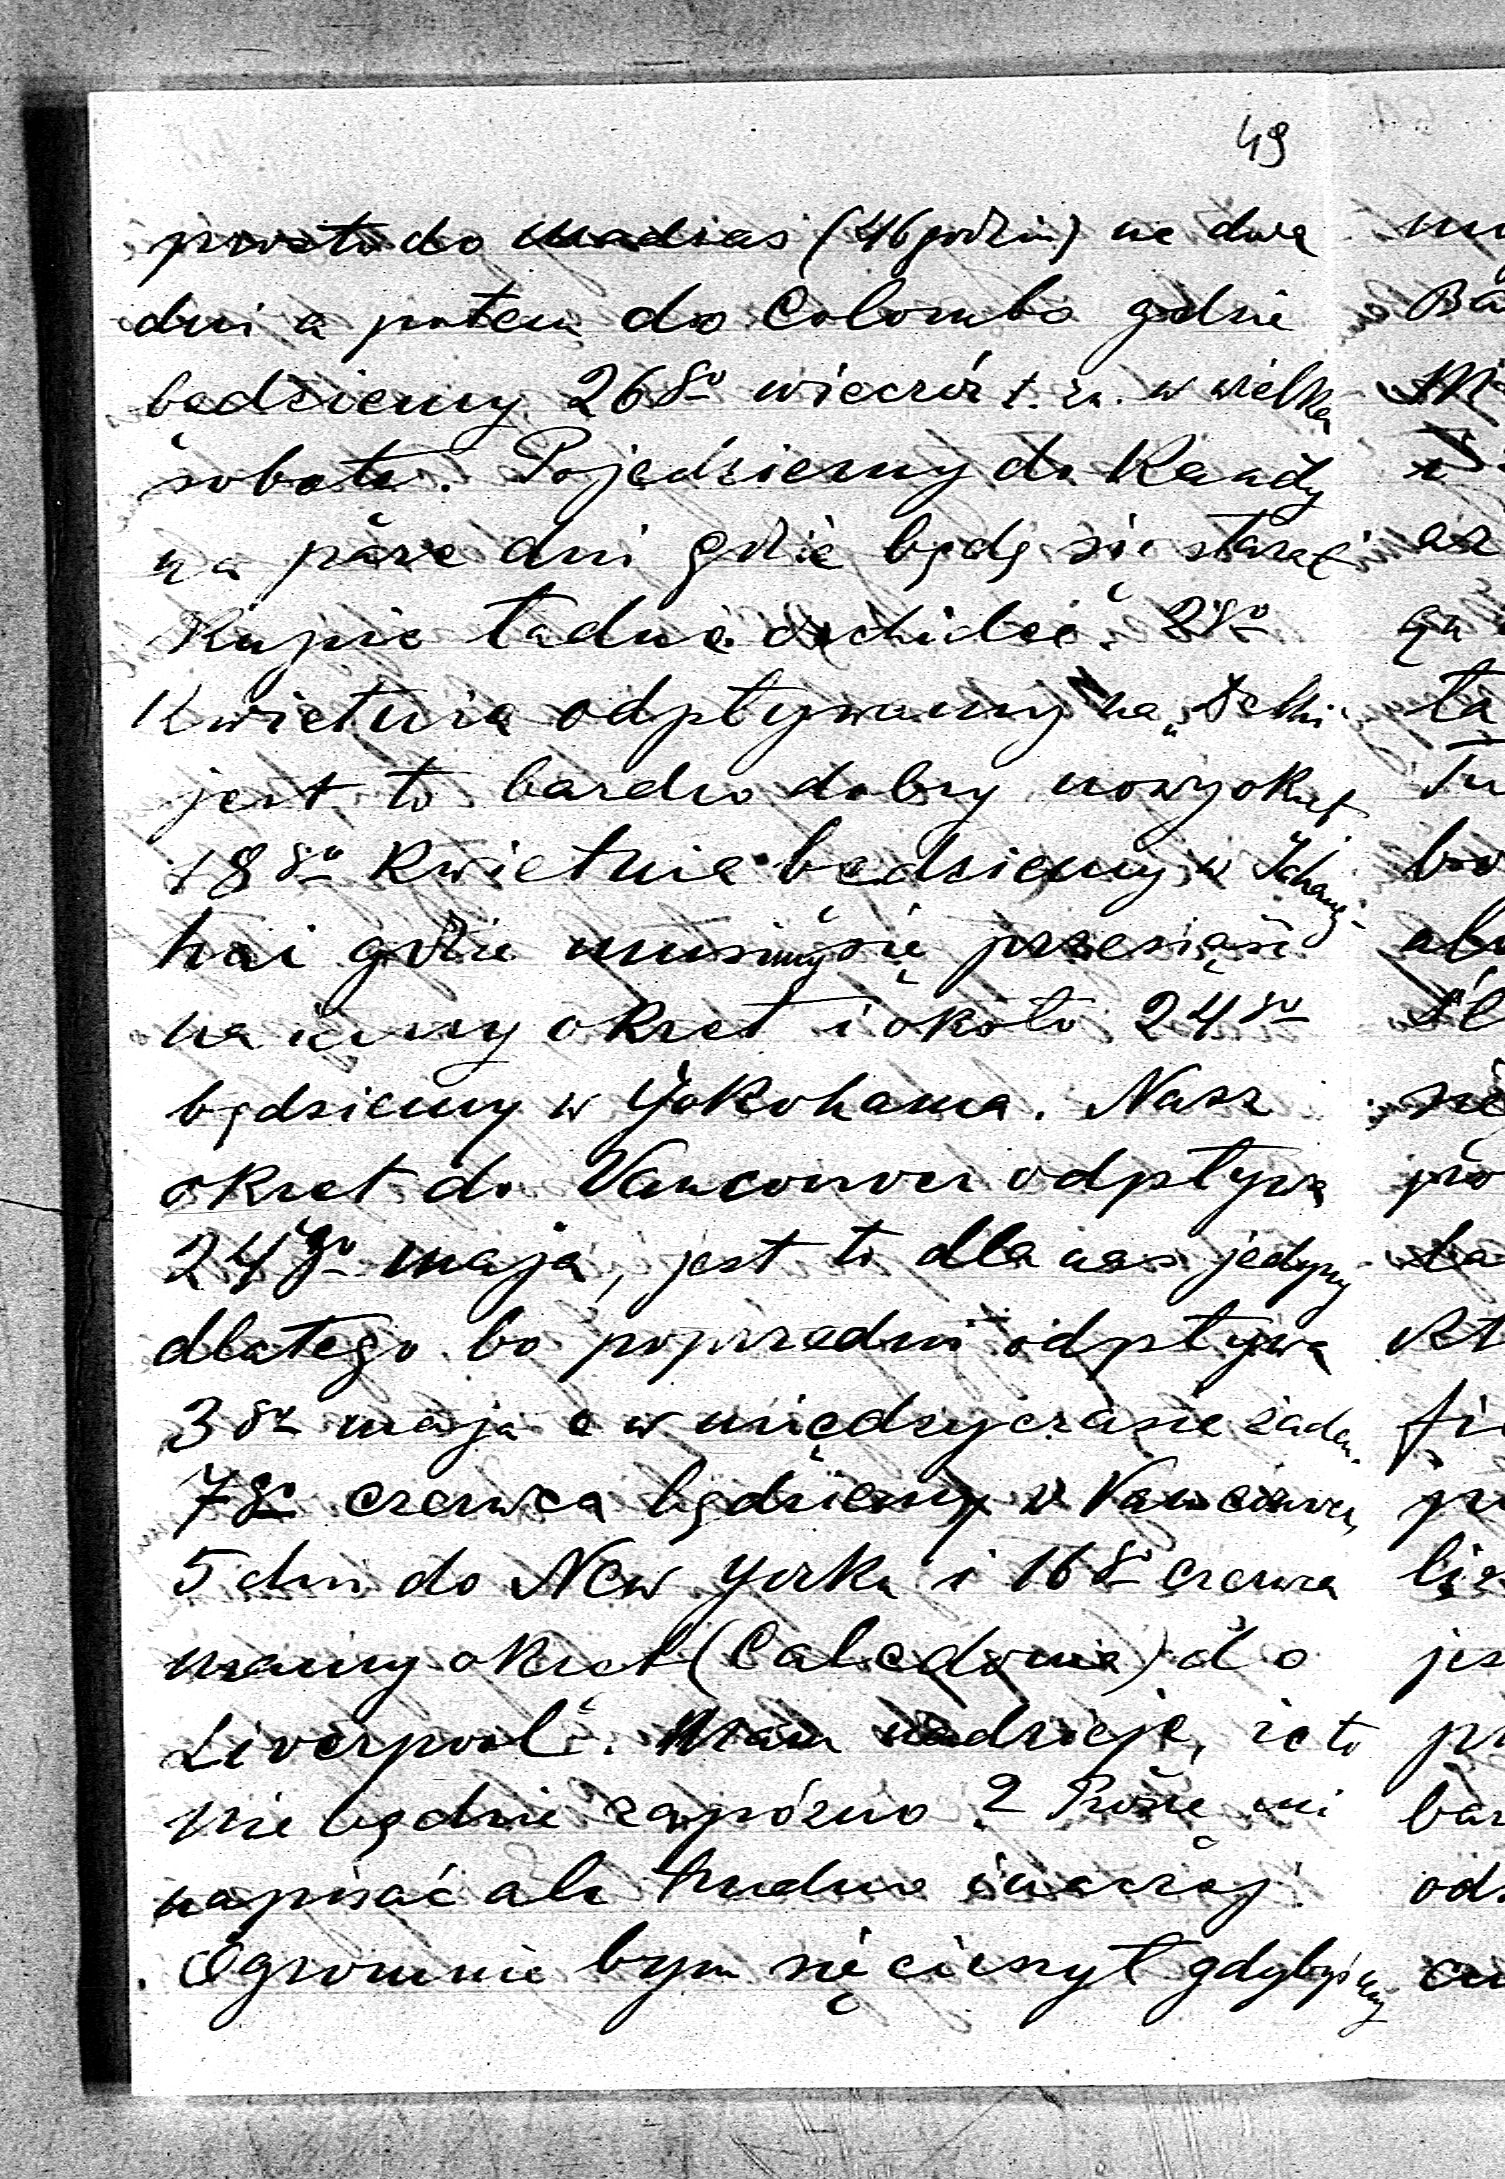 49
prosto do Madras (46 godzin) na dwa
dni a potem do Colombo gdzie
będziemy 26go wieczór t. zn. w wielką
sobotę. Pojedziemy do Kandy
na parę dni gdzie będę się starać
kupić ładne orchidee. 28go
Kwietnia odpływamy na „Delhi
jest to bardzo dobry nowy okręt
18go Kwietnia będziemy w Schang-
hai gdzie musimy się przesiąść
na inny okręt i około 24go
będziemy w Yokohama. Nasz
okręt do Vancouver odpływa
24go maja, jest to dla nas jedyny
dlatego bo poprzedni odpływa
3go maja a w międzyczasie żaden.
7go czerwca będziemy w Vancouver,
5 dni do New Yorku i 16go czerwca
mamy okręt (Caledonia) do
Liverpool. Mam nadzieję, że to
nie będzie zapóźno? Proszę mi
napisać ale trudno inaczej.
Ogromnie bym się cieszył gdybyśmy